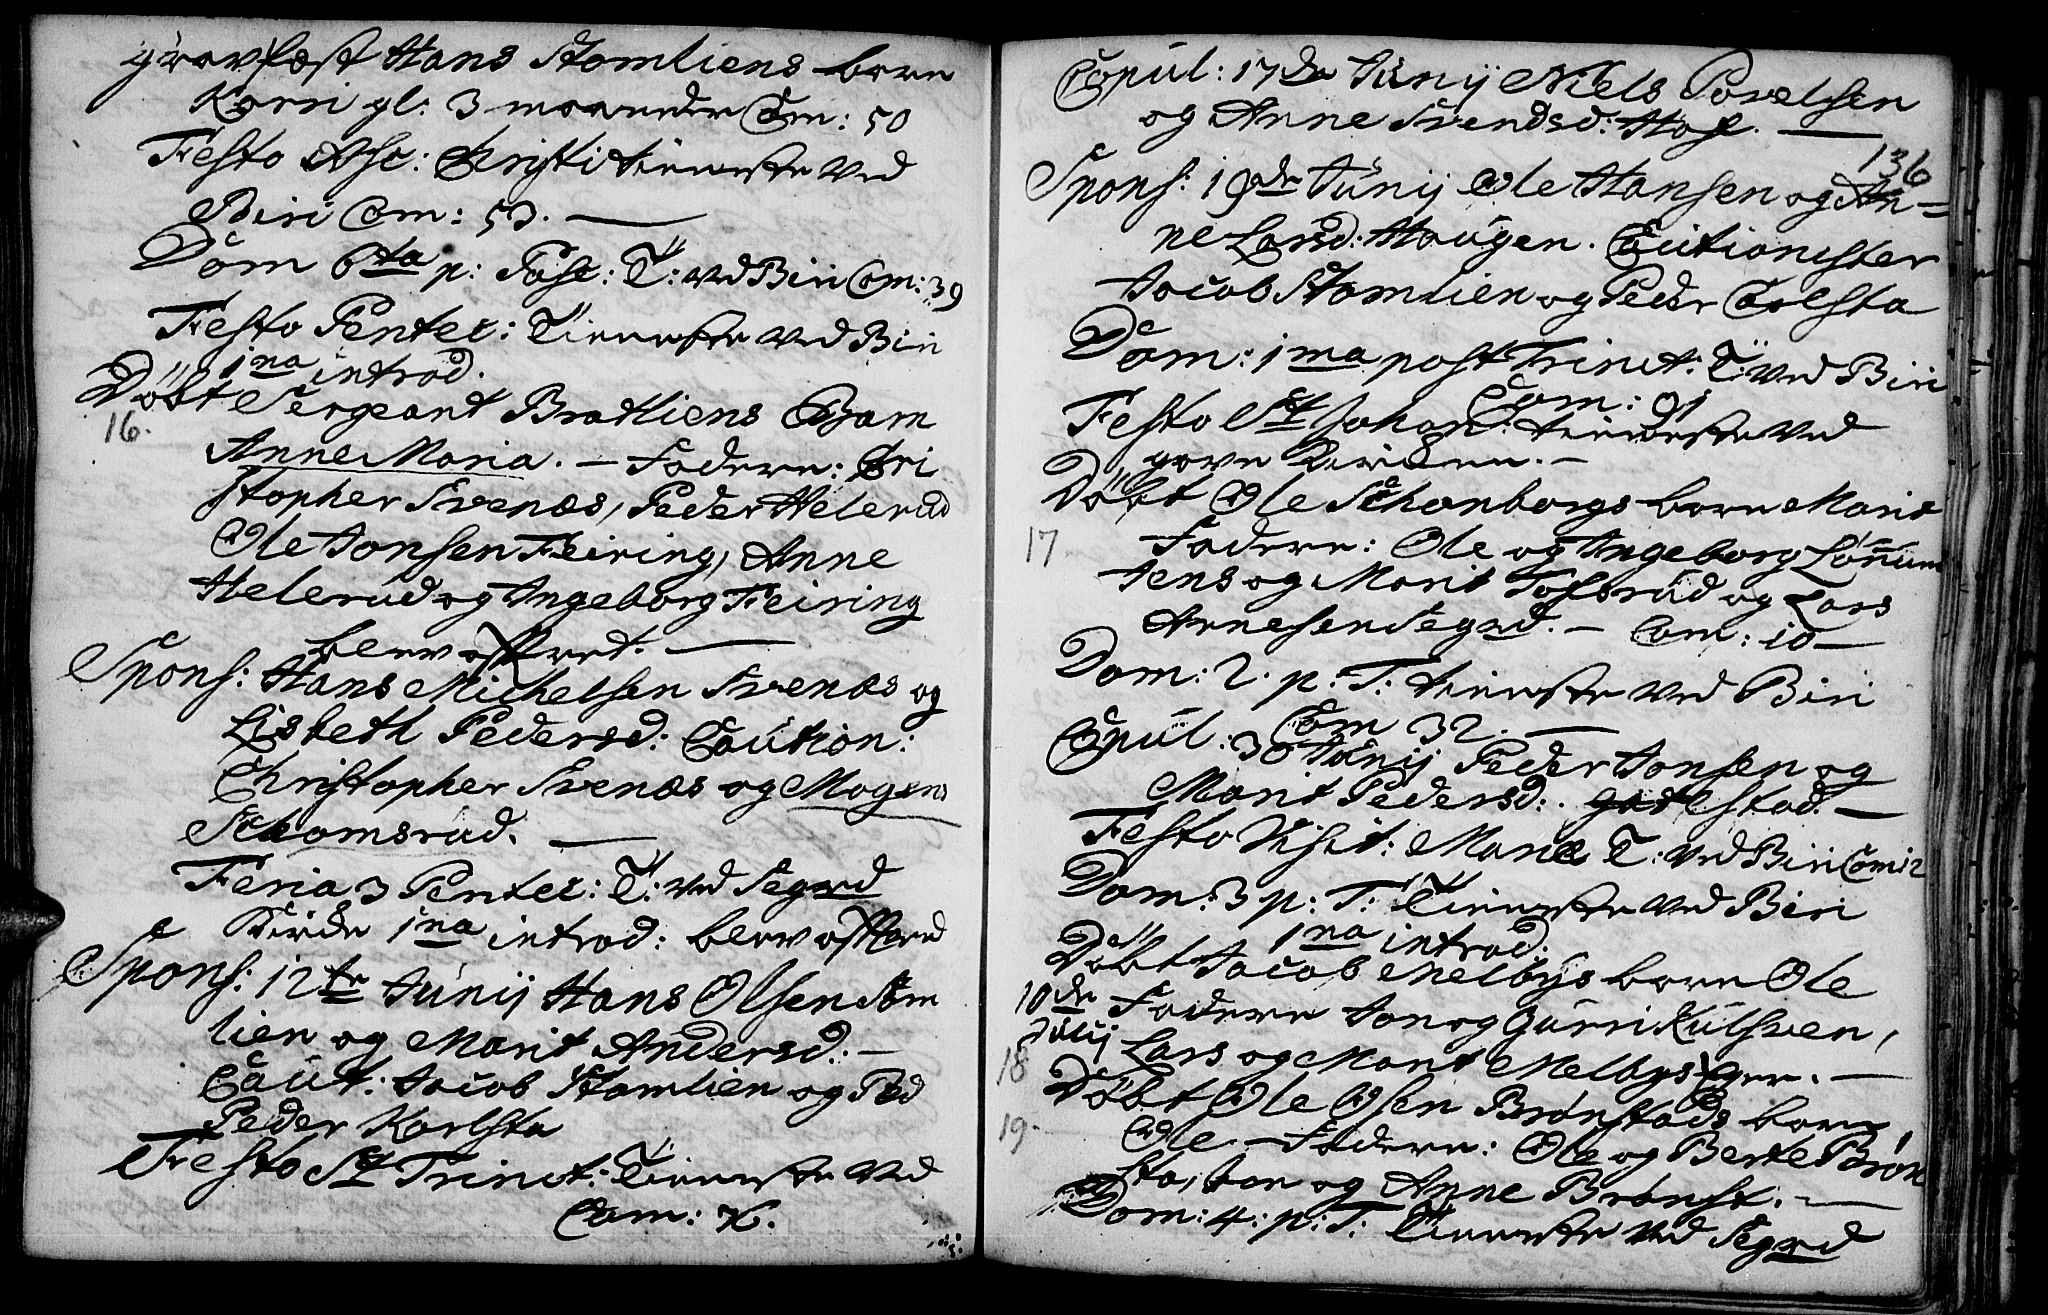 gravfæst Hans Stomliens barn
Karri gl: 3 maaneder Com: 50
Festo Asc: Christi tienneste ved
Biri Com: 53.
Dom 6ta p: Pasc: T: ved Biri Com: 39
Festo Pentec: Tienneste ved Biri
1na introd.
Døbt Sergeant Bratliens Barn
16.
Anne Maria. – Fadere: Cri
stopher Svenæs, Peder Helerud
Ole Jonsen Feiring, Anne
Helerud og Ingeborg Feiring
blev offret.
Spons: Hans Michelsen Svenæs og
Lisbeth Pedersd: Caution:
Christopher Svenæs og Mogens
Schomsrud.
Feria 3 Pentec: T: ved Segrd
Kirke 1na introd: blev offred
Spons: 12te Junij Hans Olsen Stom
lien og Marit Andersd: –
Caut: Jacob Stomlien og Ped
Peder Karlsta
Festo St Trinit: Tienneste ved
Com: X.
Copul: 17de Junij Niels Povelsen
og Anne Svendsd: Hof.
136
Spons: 19de Junij Ole Hansen og An=
ne Larsd: Haugen. Cautionister
Jacob Stomlien og Peder Carlsta
Dom: 1ma post Trinit: T: ved Biri
Com: 91
Festo St Johan: tienneste ved
Døbt Ole Schonborgs barn Marit
17
Fadere: Ole og Ingeborg Lønnum
Jens og Marit Tofsrud og Lars
Arnesen Segrd. – Com: 10 –
Dom: 2. p: T: tienneste ved Biri
Com 32.
Copul: 30 Junij Peder Jonsen og
Marit Pedersd:
Festo Visit: Mariæ T: ved Biri Com 12
Dom: 3 p: T: Tienneste ved Biri
1na introd:
Døbt Jacob Melbys barn Ole
10de
Fadere Jon og Gurri Kulsveen,
Julij
Lars og Marit Melbys Eger. –
18
Døbt Ole Olsen Brønstads barn
19.
Ole – Fadere: Ole og Berte Brøn
sta, Jon og Anne Brønst. –
Dom: 4: p: T: Tienneste ved Segrd